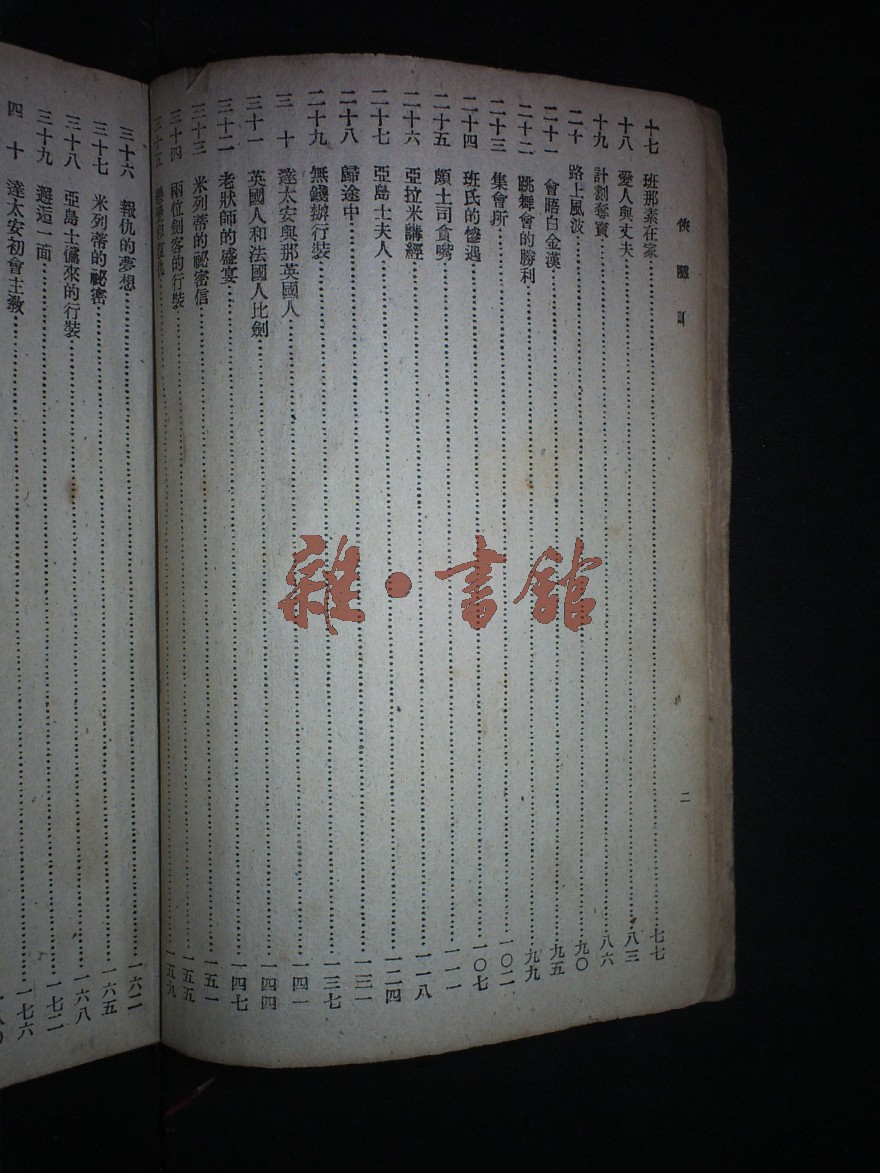 俠
十七 班那素在家 七七
十八 愛人與丈夫 八三
十九 計劃奪寶 八六
二十 路上風波 九〇
二十一 會晤白金漢 九五
二十二 跳舞會的勝利 九九
二十三 集會所 一〇二
二十四 班氏的慘遇 一〇七
二十五 頗土司貪嘴 一一一
二十六 亞拉米講經 一一八
二十七 亞島士夫人 一二四
二十八 歸途中 一三一
二十九 無錢辦行裝 一三七
三十 達太安與那英國人 一四一
三十一 英國人和法國人比劍 一四四
三十二 老狀師的盛宴 一四七
三十三 米列蒂的祕密信 一五一
三十四 兩位劍客的行裝 一五五
三十五 一五九
二
三十六 報仇的夢想 一六二
三十七 米列蒂的祕密 一六五
三十八 亞島士儻來的行裝 一六八
三十九 邂逅一面 一七二
四十 達太安初會主教 一七六
雜·書館